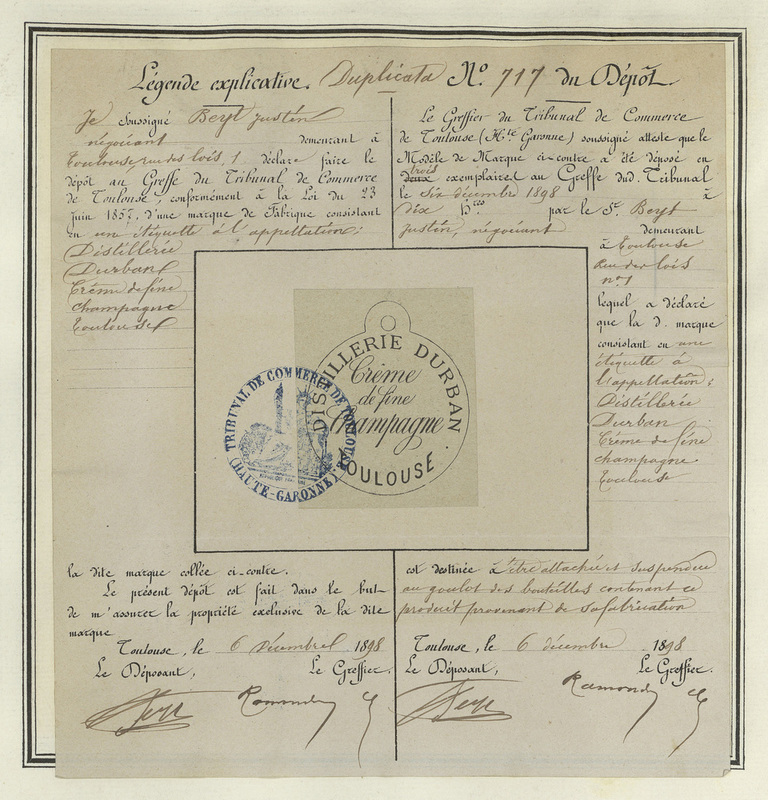 Légende explicative. Duplicata N° 717 du Dépôt.
Je soussigné Beyt Justin
négociant demeurant à
Toulouse, rue des lois, 1 déclare faire le
dépôt au Greffe du Tribunal de Commerce
de Toulouse, conformément à la Loi du 23
Juin 1857, d'une marque de Fabrique consistant
en une étiquette à l'appellation:
Distillerie
Durban
Crème de fine
champagne
Toulouse
Le Greffier du Tribunal de Commerce
de Toulouse (Hte Garonne) soussigné atteste que le
Modèle de Marque ci-contre a été déposé en
trois
deux exemplaires au Greffe dud. Tribunal
le six décembre 1898 à
dix hres par le Sr. Beyt
Justin, négociant demeurant
à Toulouse
Rue des lois
n° 1
lequel a déclaré
que la d. marque
consistant en une
étiquette à
l'appellation;
Distillerie
Durban
Crème de fine
champagne
Toulouse
DISTILLERIE DURBAN
Crème
de fine
Champagne
TOULOUSE.
TRIBUNAL DE COMMERCE DE TOULOUSE
(HAUTE-GARONNE)
la dite marque collée ci-contre.
Le présent dépôt est fait dans le but
de m'assurer la propriété exclusive de la dite
marque
Toulouse, le 6 Décembre 1898
Le Déposant, Le Greffier.
Beyt Ramond
est destinée à être attachée et suspendue
au goulot des bouteilles contenant ce
produit provenant de sa fabrication
Toulouse, le 6 décembre 1898
Le Déposant, Le Greffier.
Beyt Ramond